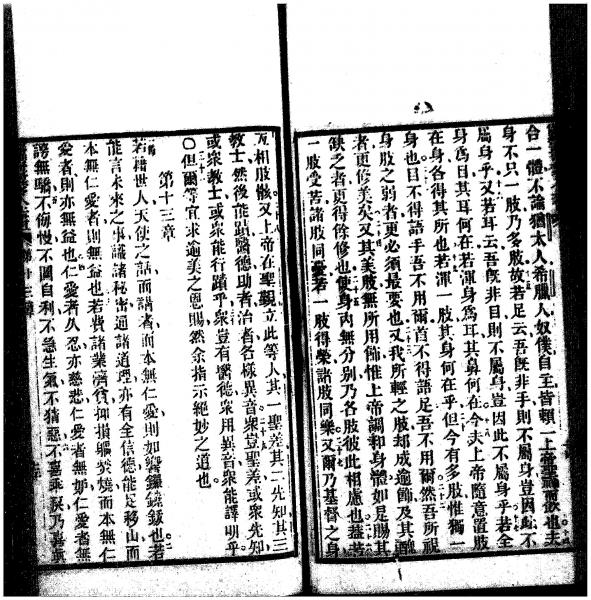 合一體不論猶太人希臘人奴僕自主皆頼一上帝聖神而飲也夫
身不只一肢乃多肢故若足云吾旣非手則不屬身豈因此不
屬身乎又若耳云吾旣非目則不屬身豈因此不屬身乎若全
身爲目其耳何在若渾身爲耳其鼻何在今夫上帝隨意置肢
在身各得其所也若渾一肢其身何在乎但今有多肢惟獨一
身也目不得語手吾不用爾首不得語足吾不用爾然吾所視
身肢之弱者更必須最要也又我所輕之肢却成逾飾及其醜
者更修美矣又其美肢無所用餙惟上帝調和身體如是賜其
缺之者更得餘修也使身內無分別乃各肢彼此相慮也葢若
一肢受苦諸肢同憂若一肢得榮諸肢同樂又爾乃基督之身
互相肢骸又上帝在聖覡立此等人其一聖差其二先知其三
教士然後能蹟醫德助者治者各樣異音衆豈聖差或衆先知
或衆教士或衆能行蹟乎衆豈有醫德衆用異音衆能譯明乎
〇但爾等宜求逾美之恩賜然余指示絕妙之道也
第十三章
若藉世人天使之話而講者而本無仁愛則如響鑼鐃鈸也若
能言未來之事識諸秘密通諸道理亦有全信德能足移山而
本無仁愛者則無益也若費諸業濟貧抑損軀焚燒而本無仁
愛者則亦無益也仁愛者久忍亦慈悲仁愛者無妒仁愛者無
謗無驕不侮慢不圖自利不急生氣不猜惡不喜乖戾乃喜真